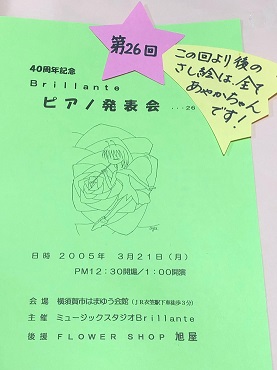 第26回
この回より後の
さし絵は、全て
あやかちゃん
です!
40周年記念
Brillante
ピアノ発表会 ...26
日時 2005年 3月21日(月)
PM12:30開場/1:00開演
会場 横須賀市はまゆう会館(JR衣笠駅下車徒歩3分)
主催 ミュージックスタジオBrillante
後援 FLOWER SHOP 旭屋